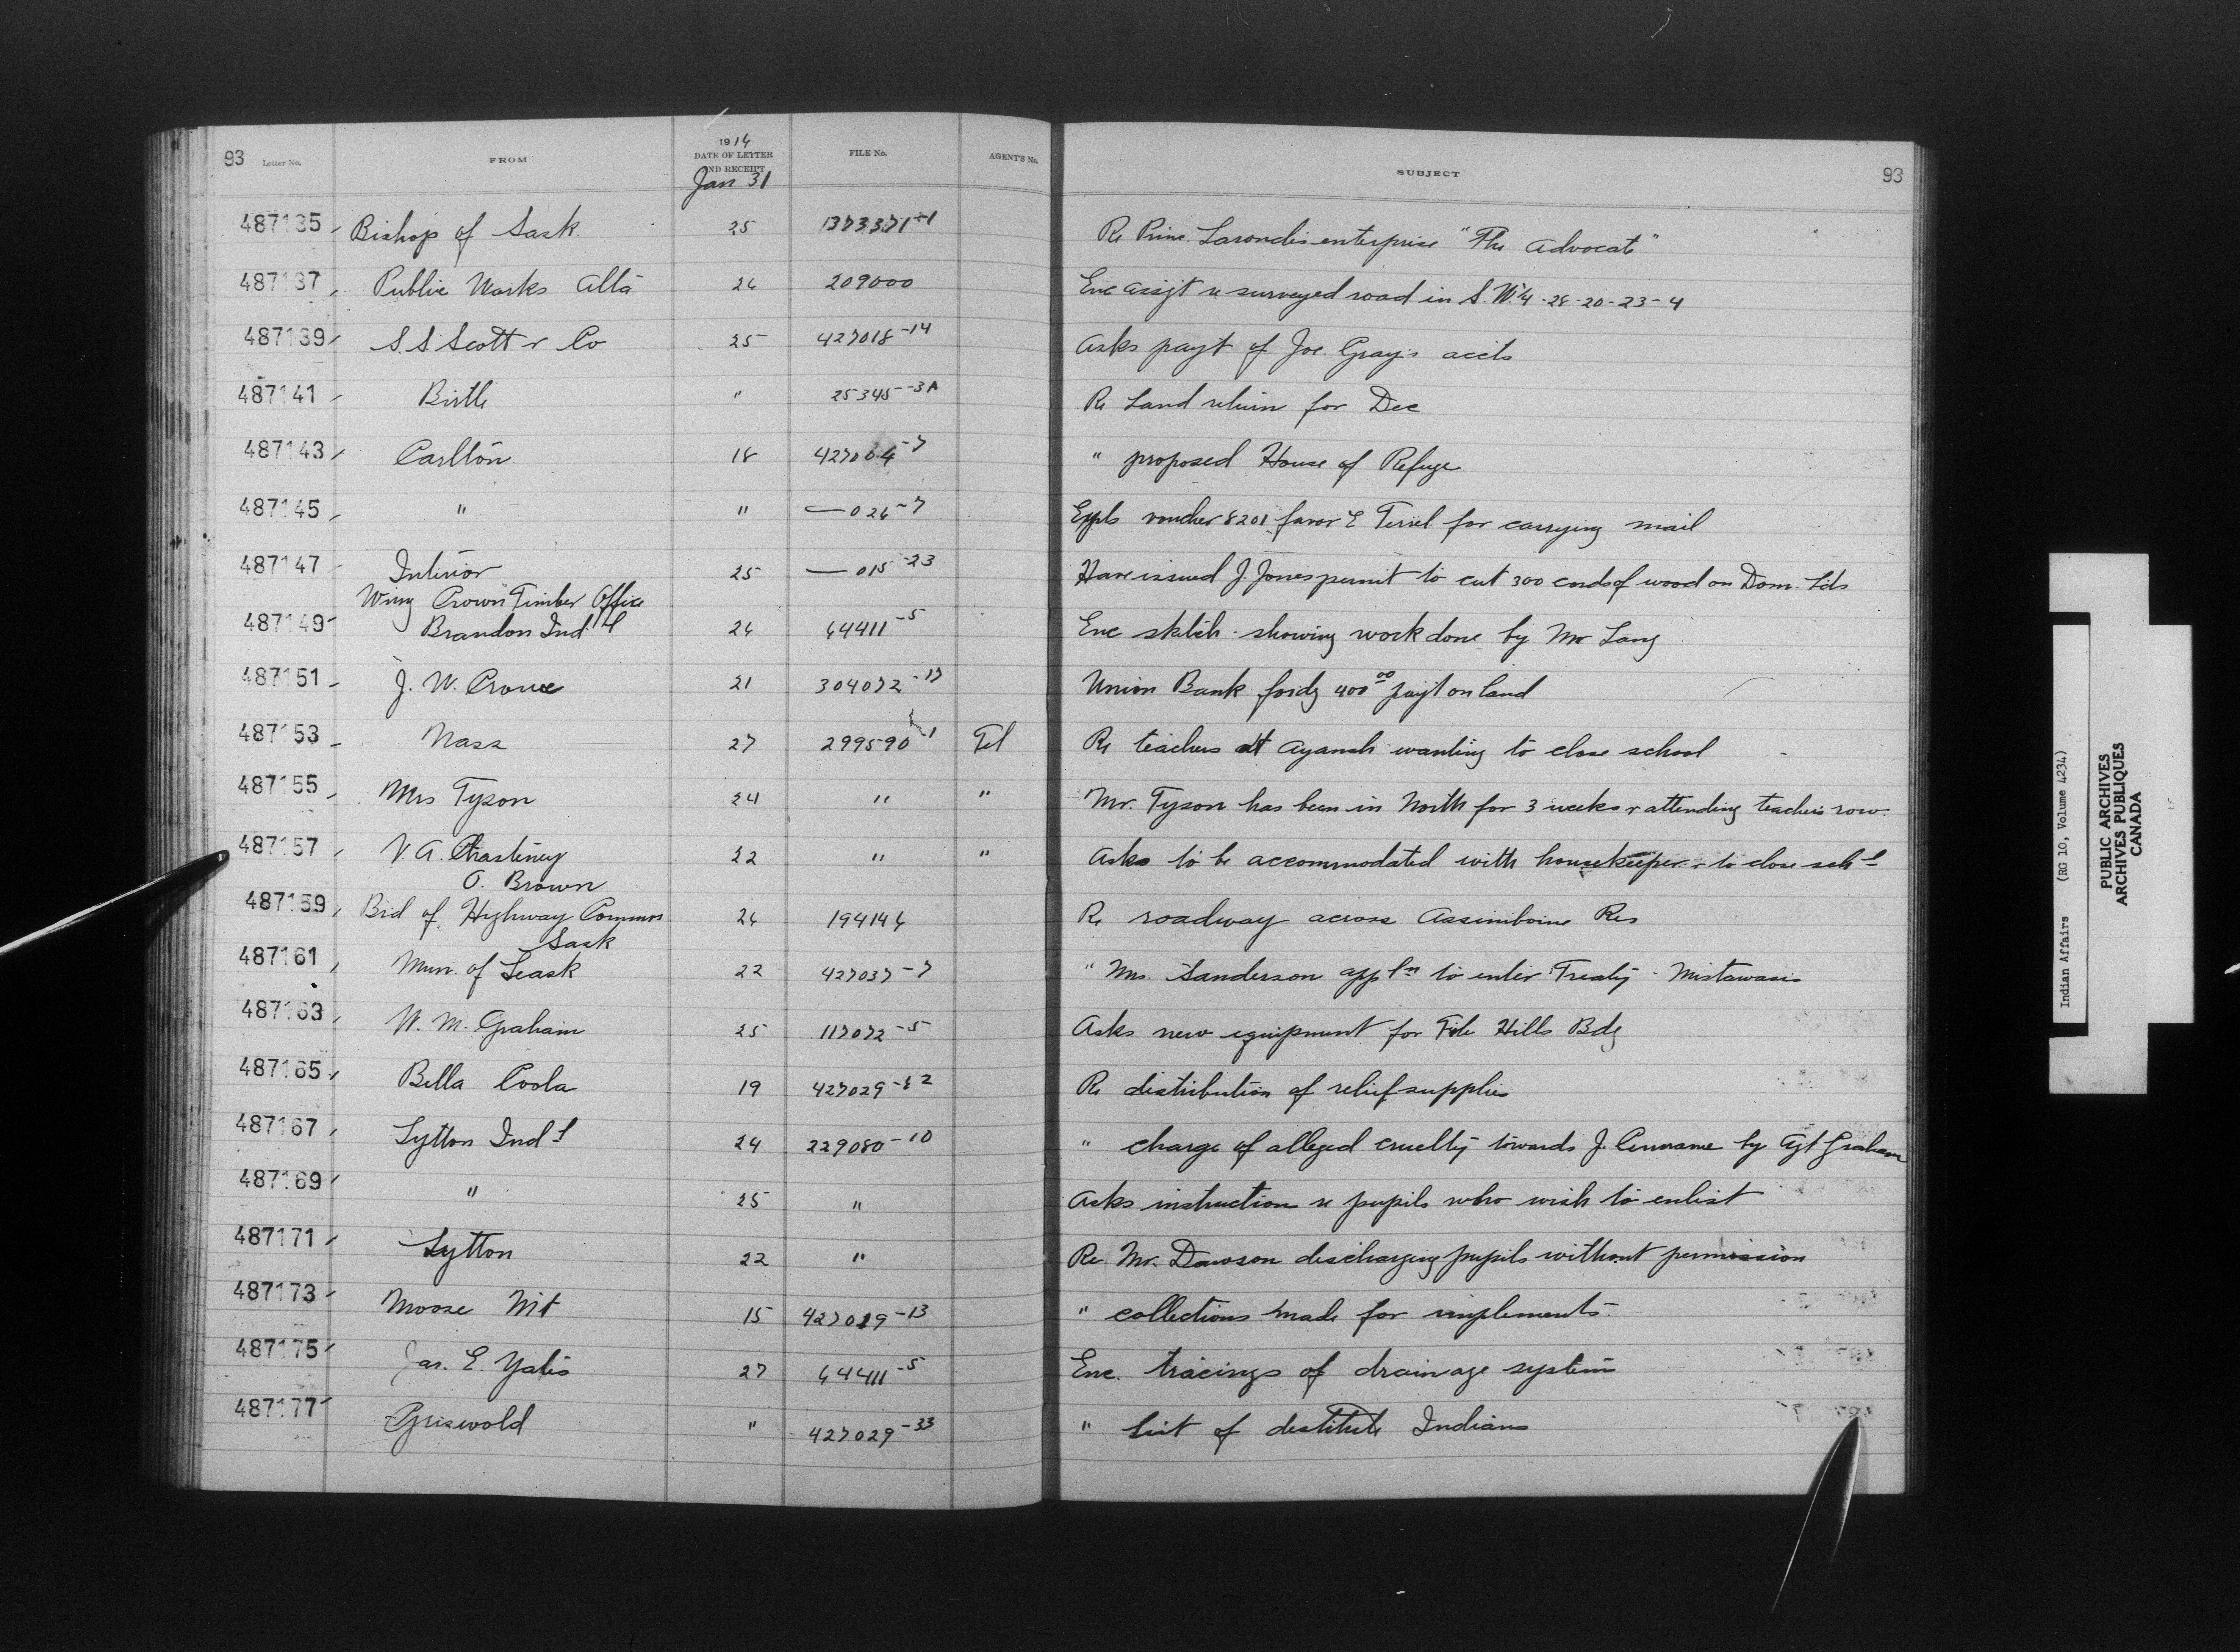 93 Letter No. FROM 1914 DATE OF LETTER AND RECEIPT FILE No. AGENT'S No. SUBJECT 93
Jan 31
487135 Bishop of Sask. 25 Re Prine. enterprise "The Advocate"
487137 Public Works Alta 26 209000 Enc assgt re surveyed road in S.W.¼-28-20-23-4
487139 S.S Scott & Co 25 427018-14 Asks payt of Joe. Gray's accts
487141 Birtle " 25345-3A Re Land return for Dec
487143 Carlton 18 427064-7 " proposed House of Refuge
487145 " " —026-7 Expls voucher 8201 favor E for carrying mail
487147 Interior 25 —015-23 Have issued J. Jones permit to cut 300 cords of wood on Dom. Lds
Wing Crown Timber Office
487149 Brandon Ind'l 26 64411-5 Enc sketch showing work done by Mr Lang
487151 J. W. Crowe 21 304072-17 Union Bank fordg 400.00 payt on land
487153 Nass 27 299590-1 Tel Re teachers at Ayansh wanting to close school
487155 Mrs Tyson 24 " " Mr. Tyson has been in North for 3 weeks & attending teachers row.
487157 V. A. Chasteney 22 " " Asks to be accommodated with housekeeper & to close schl
O. Brown
487159 Brd of Highway Commrs 26 194146 Re roadway across Assiniboine Res
Sask
487161 Mun. of Leask 22 427037-7 " Mrs. Sanderson appln to enter Treaty - Mistawasis
487163 W. M. Graham 25 117072-5 Asks new equipment for File Hills Bdg
487165 Bella Coola 19 427029-62 Re distribution of relief supplies
487167 Lytton Ind'l 24 229080-10 " charge of alleged cruelty towards J. by Agt Graham
487169 " 25 " Asks instruction re pupils who wish to enlist
487171 Lytton 22 " Re Mr. Dawson discharging pupils without permission
487173 Moose Mt 15 427019-13 " collections made for implements
487175 Jas. E. Yates 27 64411-5 Enc. tracings of drainage system
487177 Griswold " 427029-33 " List of destitute Indians
Indian Affairs (RG 10, Volume 4234)
PUBLIC ARCHIVES
ARCHIVES PUBLIQUES
CANADA